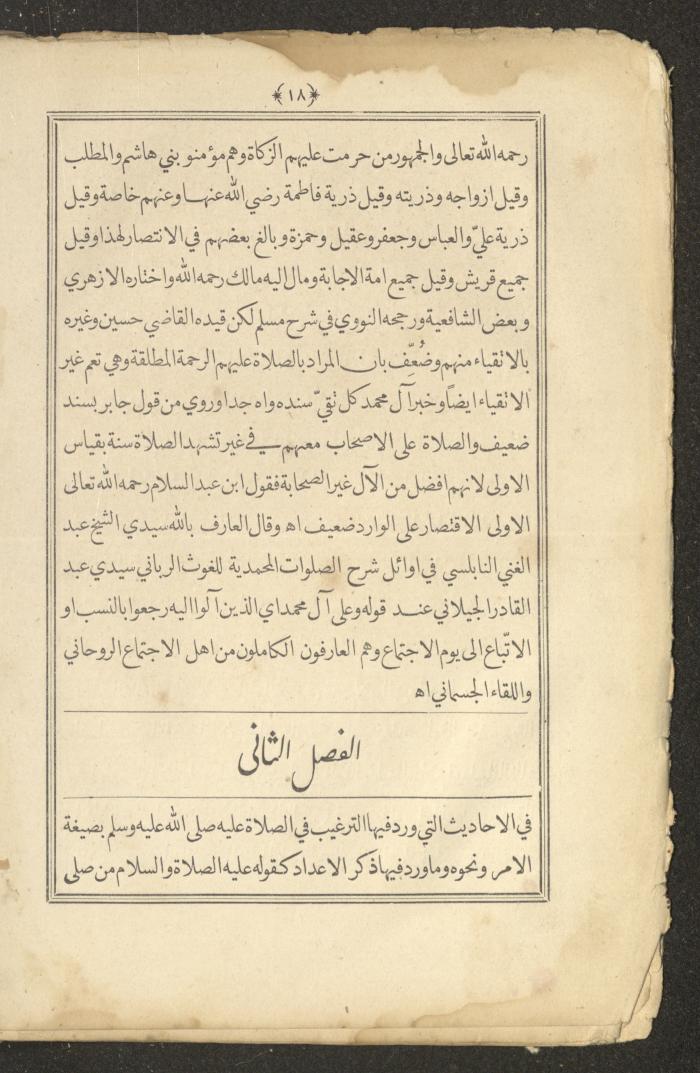 ﴿١٨﴾
رحمه الله تعالى والجمهور من حرمت عليهم الزكاة وهم مؤمنو بني هاشم والمطلب
وقيل ازواجه وذريته وقيل ذرية فاطمة رضي الله عنها وعنهم خاصة وقيل
ذرية عليّ والعباس وجعفر وعقيل وحمزة وبالغ بعضهم في الانتصار لهذا وقيل
جميع قريش وقيل جميع امة الاجابة ومال اليه مالك رحمه الله واختاره الازهري
وبعض الشافعية ورجحه النووي في شرح مسلم لكن قيده القاضي حسين وغيره
بالاتقياء منهم وضُعِّف بان المراد بالصلاة عليهم الرحمة المطلقة وهي تعم غير
الاتقياء ايضاً وخبر آل محمد كل تقيّ سنده واه جدا وروي من قول جابر بسند
ضعيف والصلاة على الاصحاب معهم في غير تشهد الصلاة سنة بقياس
الاولى لانهم افضل من الآل غير الصحابة فقول ابن عبد السلام رحمه الله تعالى
الاولى الاقتصار على الوارد ضعيف اه وقال العارف بالله سيدي الشيخ عبد
الغني النابلسي في اوائل شرح الصلوات المحمدية للغوث الرباني سيدي عبد
القادر الجيلاني عند قوله وعلى آل محمد اي الذين آلوا اليه رجعوا بالنسب او
الاتّباع الى يوم الاجتماع وهم العارفون الكاملون من اهل الاجتماع الروحاني
واللقاء الجسماني اه
الفصل الثاني
في الاحاديث التي ورد فيها الترغيب في الصلاة عليه صلى الله عليه وسلم بصيغة
الامر ونحوه وما ورد فيها ذكر الاعداد كقوله عليه الصلاة والسلام من صلى